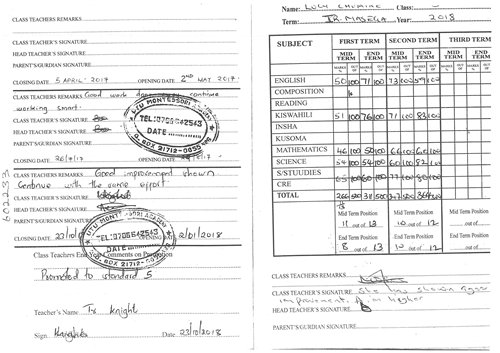 CLASS TEACHERS REMARKS
CLASS TEACHER'S SIGNATURE
HEAD TEACHER'S SIGNATURE
PARENT'S GURDIAN SIGNATURE
CLOSING DATE 5 APRIL 2017 OPENING DATE 2nd MAY 2017
CLASS TEACHERS REMARKS Good work done continue
working smart.
CLASS TEACHER'S SIGNATURE
HEAD TEACHER'S SIGNATURE
PARENT'S GURDIAN SIGNATURE
CLOSING DATE 26/7/17 OPENING DATE
CLASS TEACHERS REMARKS Good improvement shown
Continue with the same effort
CLASS TEACHER'S SIGNATURE
HEAD TEACHER'S SIGNATURE
PARENT'S GURDIAN SIGNATURE
CLOSING DATE 23/10/ OPENING 2/01/2018
Class Teachers End Year Comments on Promotion
Promoted to standard 5
Teacher's Name Tr Knight
Sign Date 23/10/2018
602233
MONTESSORI
TEL:0706642543
DATE
BOX 21712-00
Name: Class:
Term: Year: 2018
SUBJECT
FIRST TERM SECOND TERM THIRD TERM
MID TERM END TERM MID TERM END TERM MID TERM END TERM
MARK % OUT OF
ENGLISH 50 100 71 100 73 100 59 100
COMPOSITION
READING
KISWAHILI 51 100 76 100 71 100 83 100
INSHA
KUSOMA
MATHEMATICS 46 100 50 100 66 100 60 100
SCIENCE 54 100 54 100 60 100 82 100
S/STUUDIES 65 100 60 100 37 100 80 100
CRE
TOTAL
Mid Term Position Mid Term Position Mid Term Position
11 out of 13 11 out of 12 out of
End Term Position End Term Position End Term Position
8 out of 13 10 out of 12 out of
CLASS TEACHERS REMARKS
CLASS TEACHER'S SIGNATURE She has shown
improvement. Aim higher
HEAD TEACHER'S SIGNATURE
PARENT'S GURDIAN SIGNATURE